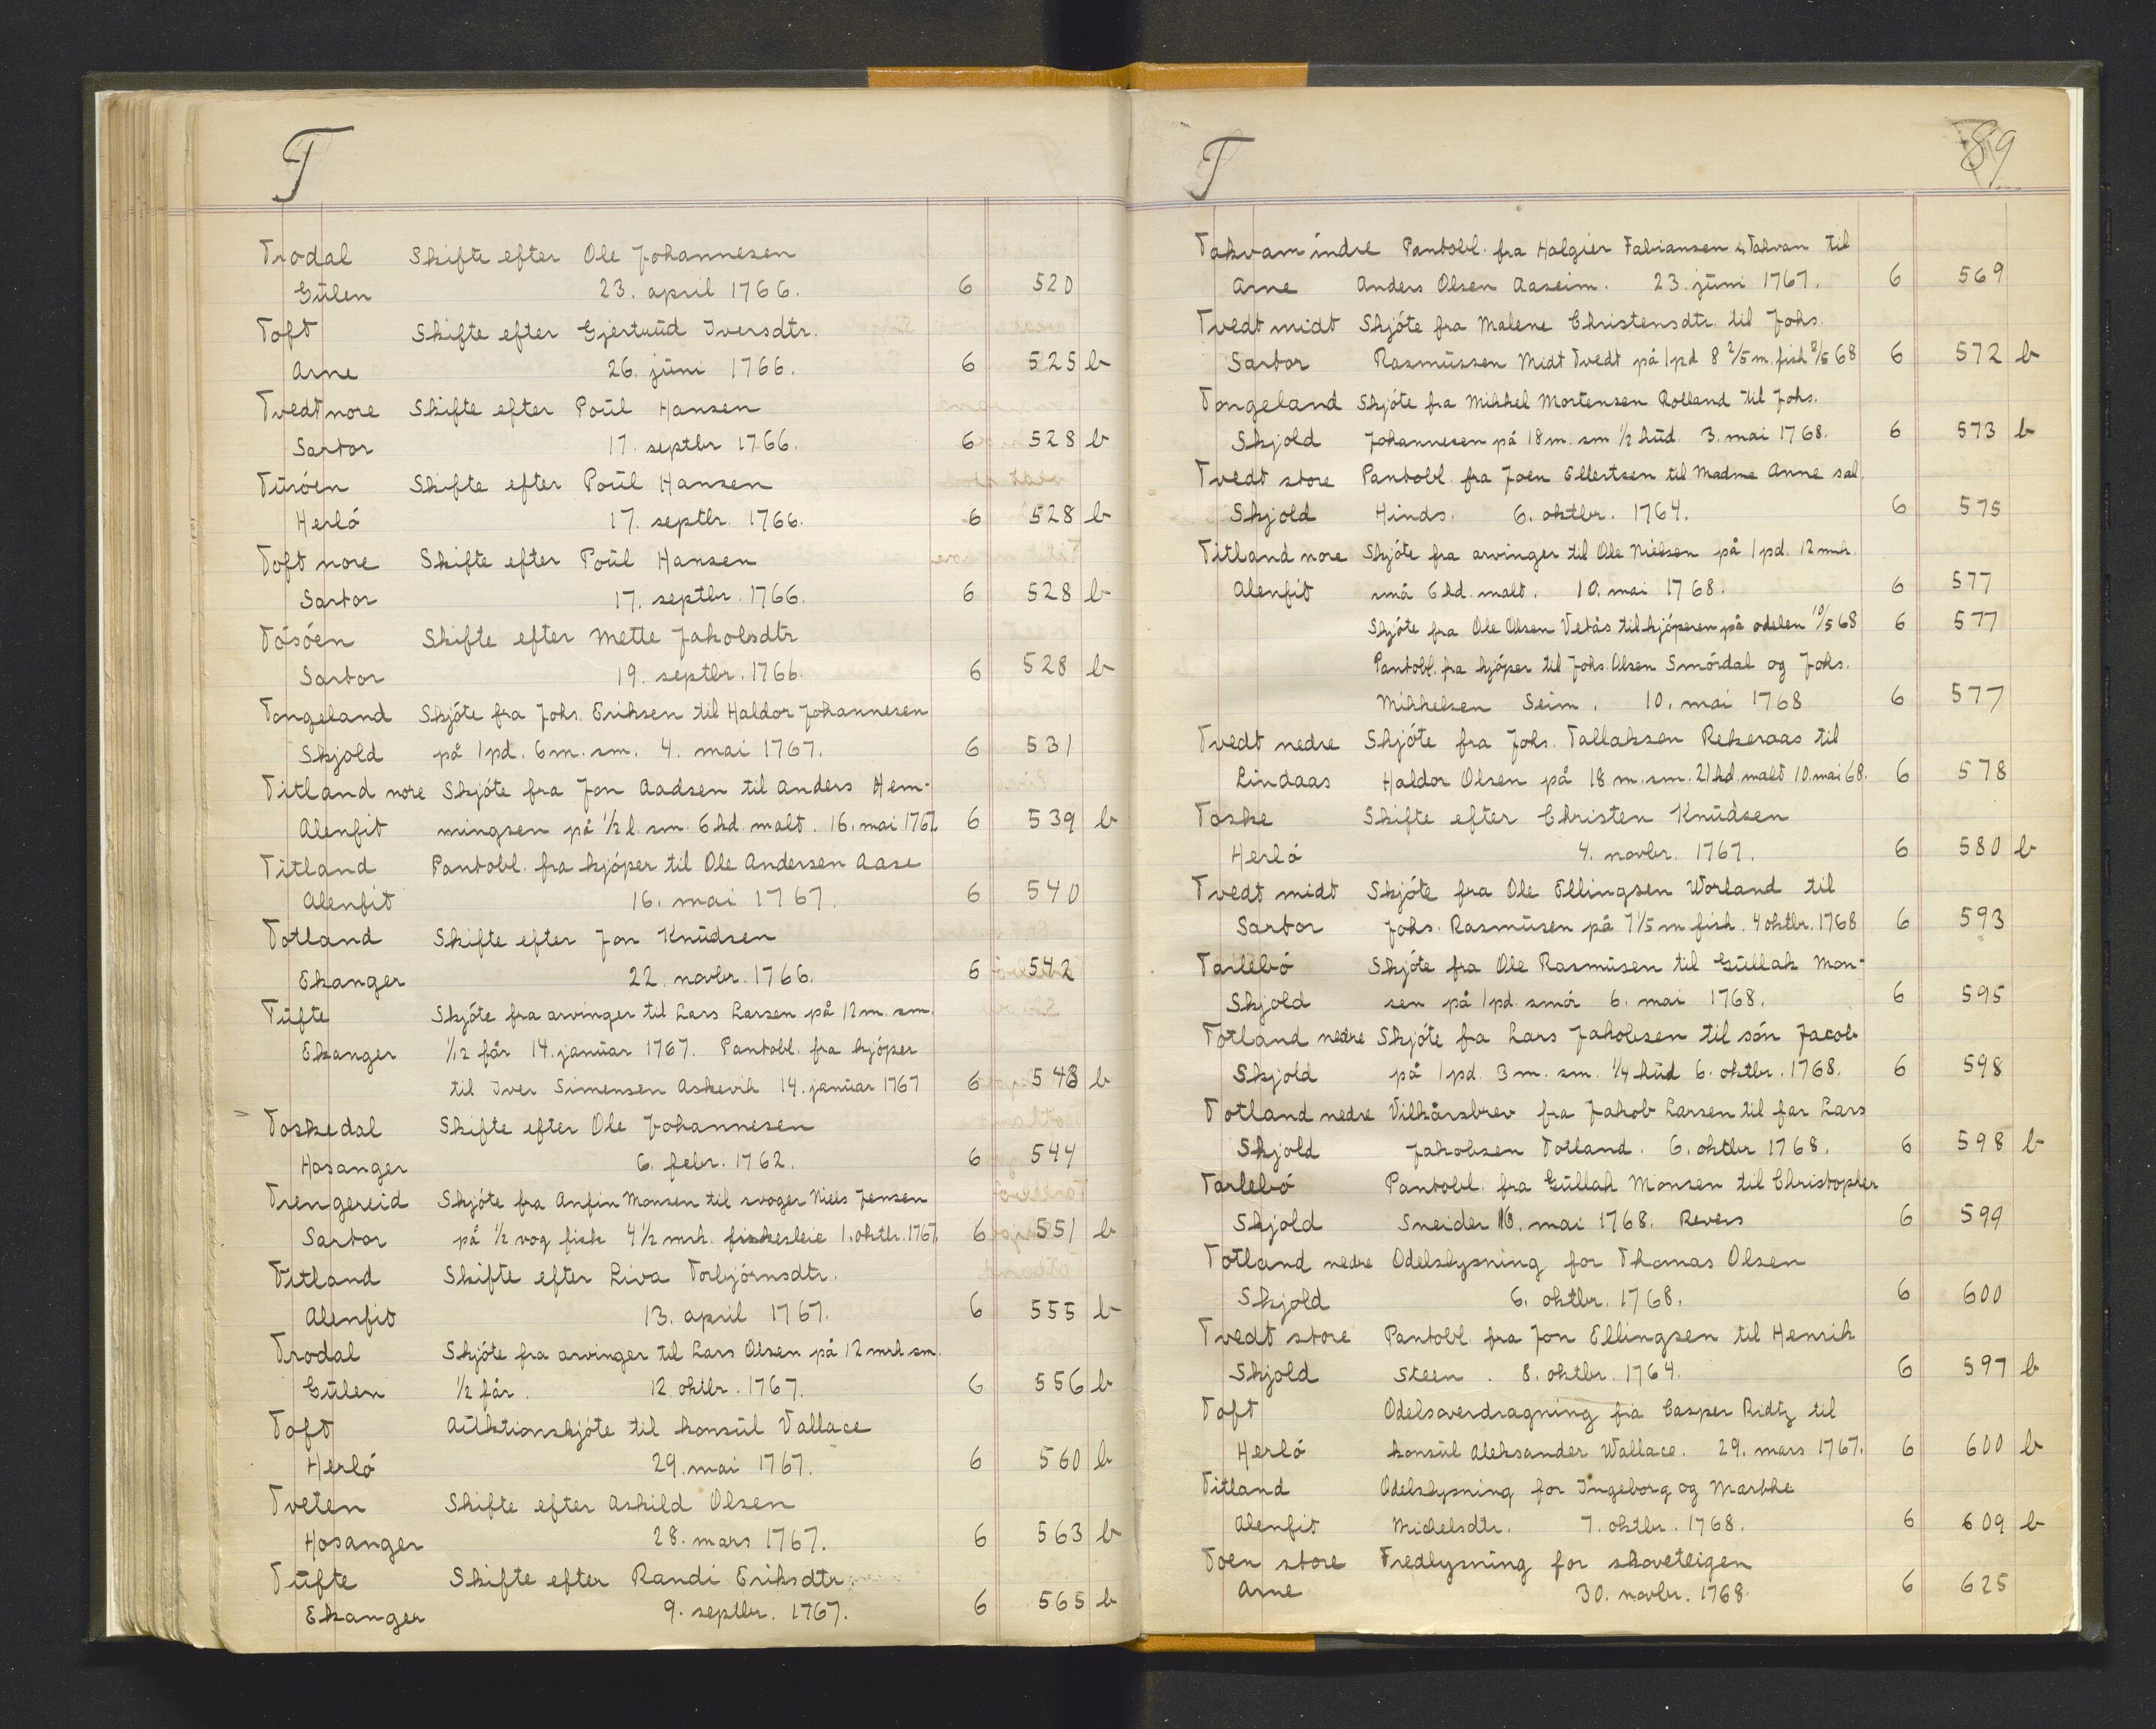 T
Trodal Skifte efter Ole Johannesen
Gülen 23. april 1766. 6 520
Toft Skifte efter Gjertrud Iversdtr.
Arne 26. jüni 1766. 6 525 b
Tvedt nore Skifte efter Poül Hansen
Sartor 17. septbr 1766. 6 528 b
Türöen Skifte efter Poül Hansen
Herlö 17. septbr. 1766. 6 528 b
Toft nore Skifte efter Poül Hansen
Sartor 17. septbr. 1766. 6 528 b
Tösöen Skifte efter Mette Jakobsdtr
Sartor 19. septbr. 1766. 6 528 b
Tongeland Skjöte fra Johs. Eriksen til Haldor Johannesen
Skjold på 1 pd. 6 m. sm. 4. mai 1767. 6 531
Titland nore Skjöte fra Jon Aadsen til Anders Hem-
Alenfit mingsen på ½ l. sm. 6 kd. malt. 16. mai 1767. 6 539 b
Titland Pantobl. fra kjöper til Ole Andersen Aase
Alenfit 16. mai 1767. 6 540
Totland Skifte efter Jon Knüdsen
Ekanger 22. novbr. 1766. 6 542
Tüfte Skjöte fra arvinger til Lars Larsen på 12 m. sm.
Ekanger ½ får 14. janüar 1767. Pantobl. fra kjöper
til Iver Simensen Askevik 14. janüar 1767 6 543 b
Toskedal Skifte efter Ole Johannesen
Hosanger 6. febr. 1762. 6 544
Trengereid Skjöte fra Anfin Monsen til svoger Niels Jensen
Sartor på ½ vog fisk 4½ mrk. fiskesleie 1. oktbr. 1767. 6 551 b
Titland Skifte efter Liva Torbjörnsdtr.
Alenfit 13. april 1767. 6 555 b
Trodal Skjöte fra arvinger til Lars Olsen på 12 mrk sm.
Gülen ½ får. 12. oktbr. 1767. 6 556 b
Toft Aüktionskjöte til konsül Vallace
Herlö 29. mai 1767. 6 560 b
Tveten Skifte efter Askild Olsen
Hosanger 28. mars 1767. 6 563 b
Tüfte Skifte efter Randi Eriksdtr.
Ekanger 9. septbr. 1767. 6 565 b
T 89
Takvam indre Pantobl. fra Holgier Fabiansen i. Takvan til
Arne Anders Olsen Aaseim. 23. jüni 1767. 6 569
Tvedt midt Skjöte fra Malene Christensdtr. til Johs.
Sartor Rasmüssen Midt Tvedt på 1 pd 8 2/5 m. fisk 2/5 68 6 572 b
Tongeland Skjöte fra Mikkel Mortensen Rolland til Johs.
Skjold Johannesen på 18 m. sm ½ hüd. 3. mai 1768. 6 573 b
Tvedt store Pantobl. fra Joen Ellertsen til Madme Anne sal.
Skjold Hinds. 6. oktbr. 1764. 6 575
Titland nore Skjöte fra arvinger til Ole Nielsen på 1 pd. 12 mrk.
Alenfit smä 6 kd. malt. 10. mai 1768. 6 577
Skjöte fra Ole Olsen Vetås til kjöperen på odelen 10/5 68 6 577
Pantobl. fra kjöper til Johs. Olsen Smördal og Johs.
Mikkelsen Seim. 10. mai 1768 6 577
Tvedt nedre Skjöte fra Johs. Tallaksen Rekeraas til
Lindaas Haldor Olsen på 18 m. sm. 21 kd. malt 10. mai 68. 6 578
Toske Skifte efter Christen Knüdsen
Herlö 4. novbr. 1767. 6 580 b
Tvedt midt Skjöte fra Ole Ellingsen Worland til
Sartor Johs. Rasmüsen på 7 1/5 m fisk. 4 oktbr. 1768 6 593
Tarlebö Skjöte fra Ole Rasmüsen til Güllak Mon-
Skjold sen på 1 pd. smör 6. mai 1768. 6 595
Totland nedre Skjöte fra Lars Jakobsen til sön Jacob
Skjold på 1 pd. 3 m. sm. ¼ hüd 6. oktbr. 1768. 6 598
Totland nedre Vilkårsbrev fra Jakob Larsen til far Lars
Skjold Jakobsen Totland. 6. oktbr 1768. 6 598 b
Tarlebö Pantobl. fra Güllak Monsen til Christopher
Skjold Sneider 16. mai 1768. Revers 6 599
Totland nedre Odelslysning for Thomas Olsen
Skjold 6. oktbr. 1768. 6 600
Tvedt store Pantobl. fra Jon Ellingsen til Henrik
Skjold Steen. 8. oktbr. 1764. 6 597 b
Toft Odelsoverdragning fra Casper Ridtz til
Herlö konsül Aleksander Wallace. 29. mars 1767. 6 600 b
Titland Odelslysning for Ingeborg og Marthe
Alenfit Michelsdtr. 7. oktbr. 1768. 6 609 b
Toen store Fredlysning for skoveteigen
Arne 30. novbr. 1768. 6 625